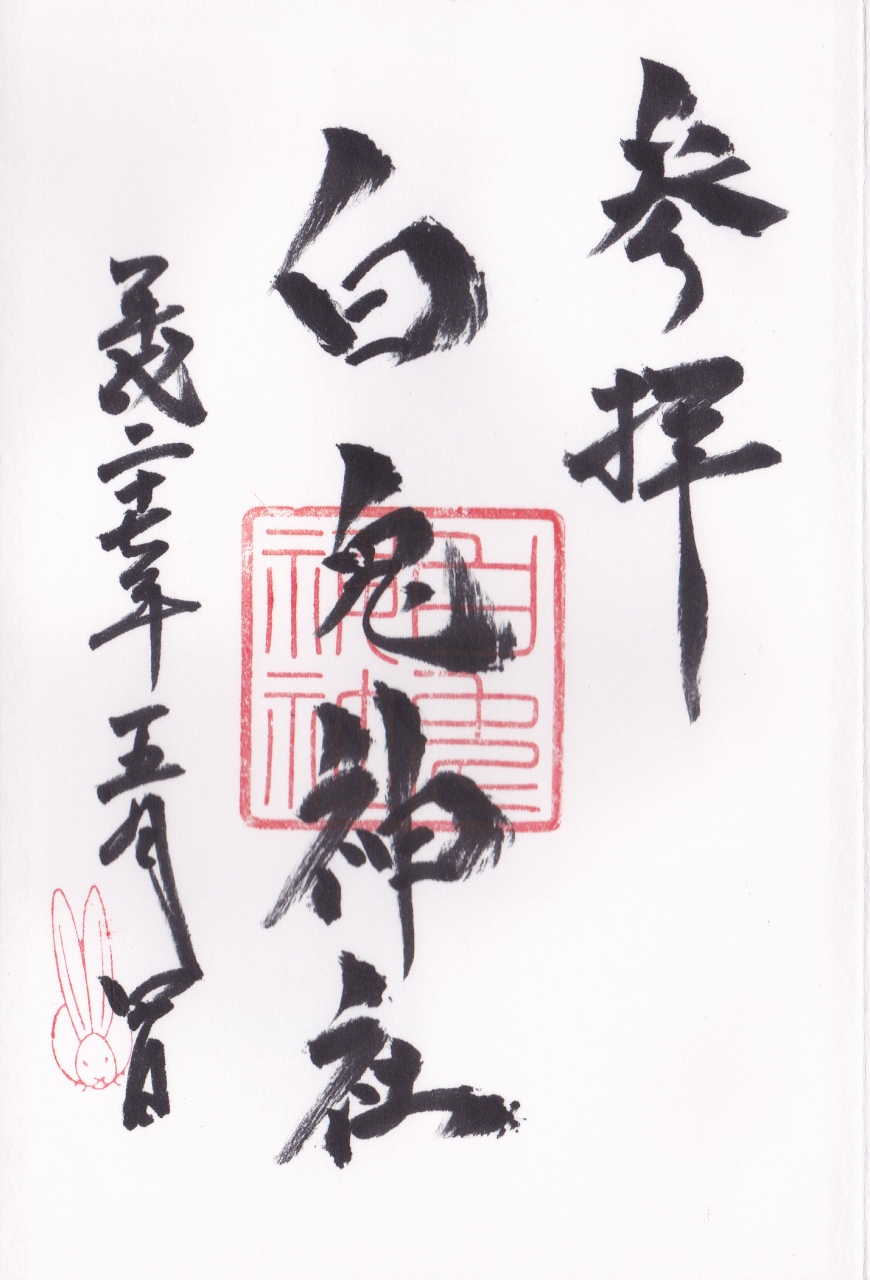 参拝
白兎神社
平成二十七年五月日
白兎
神社